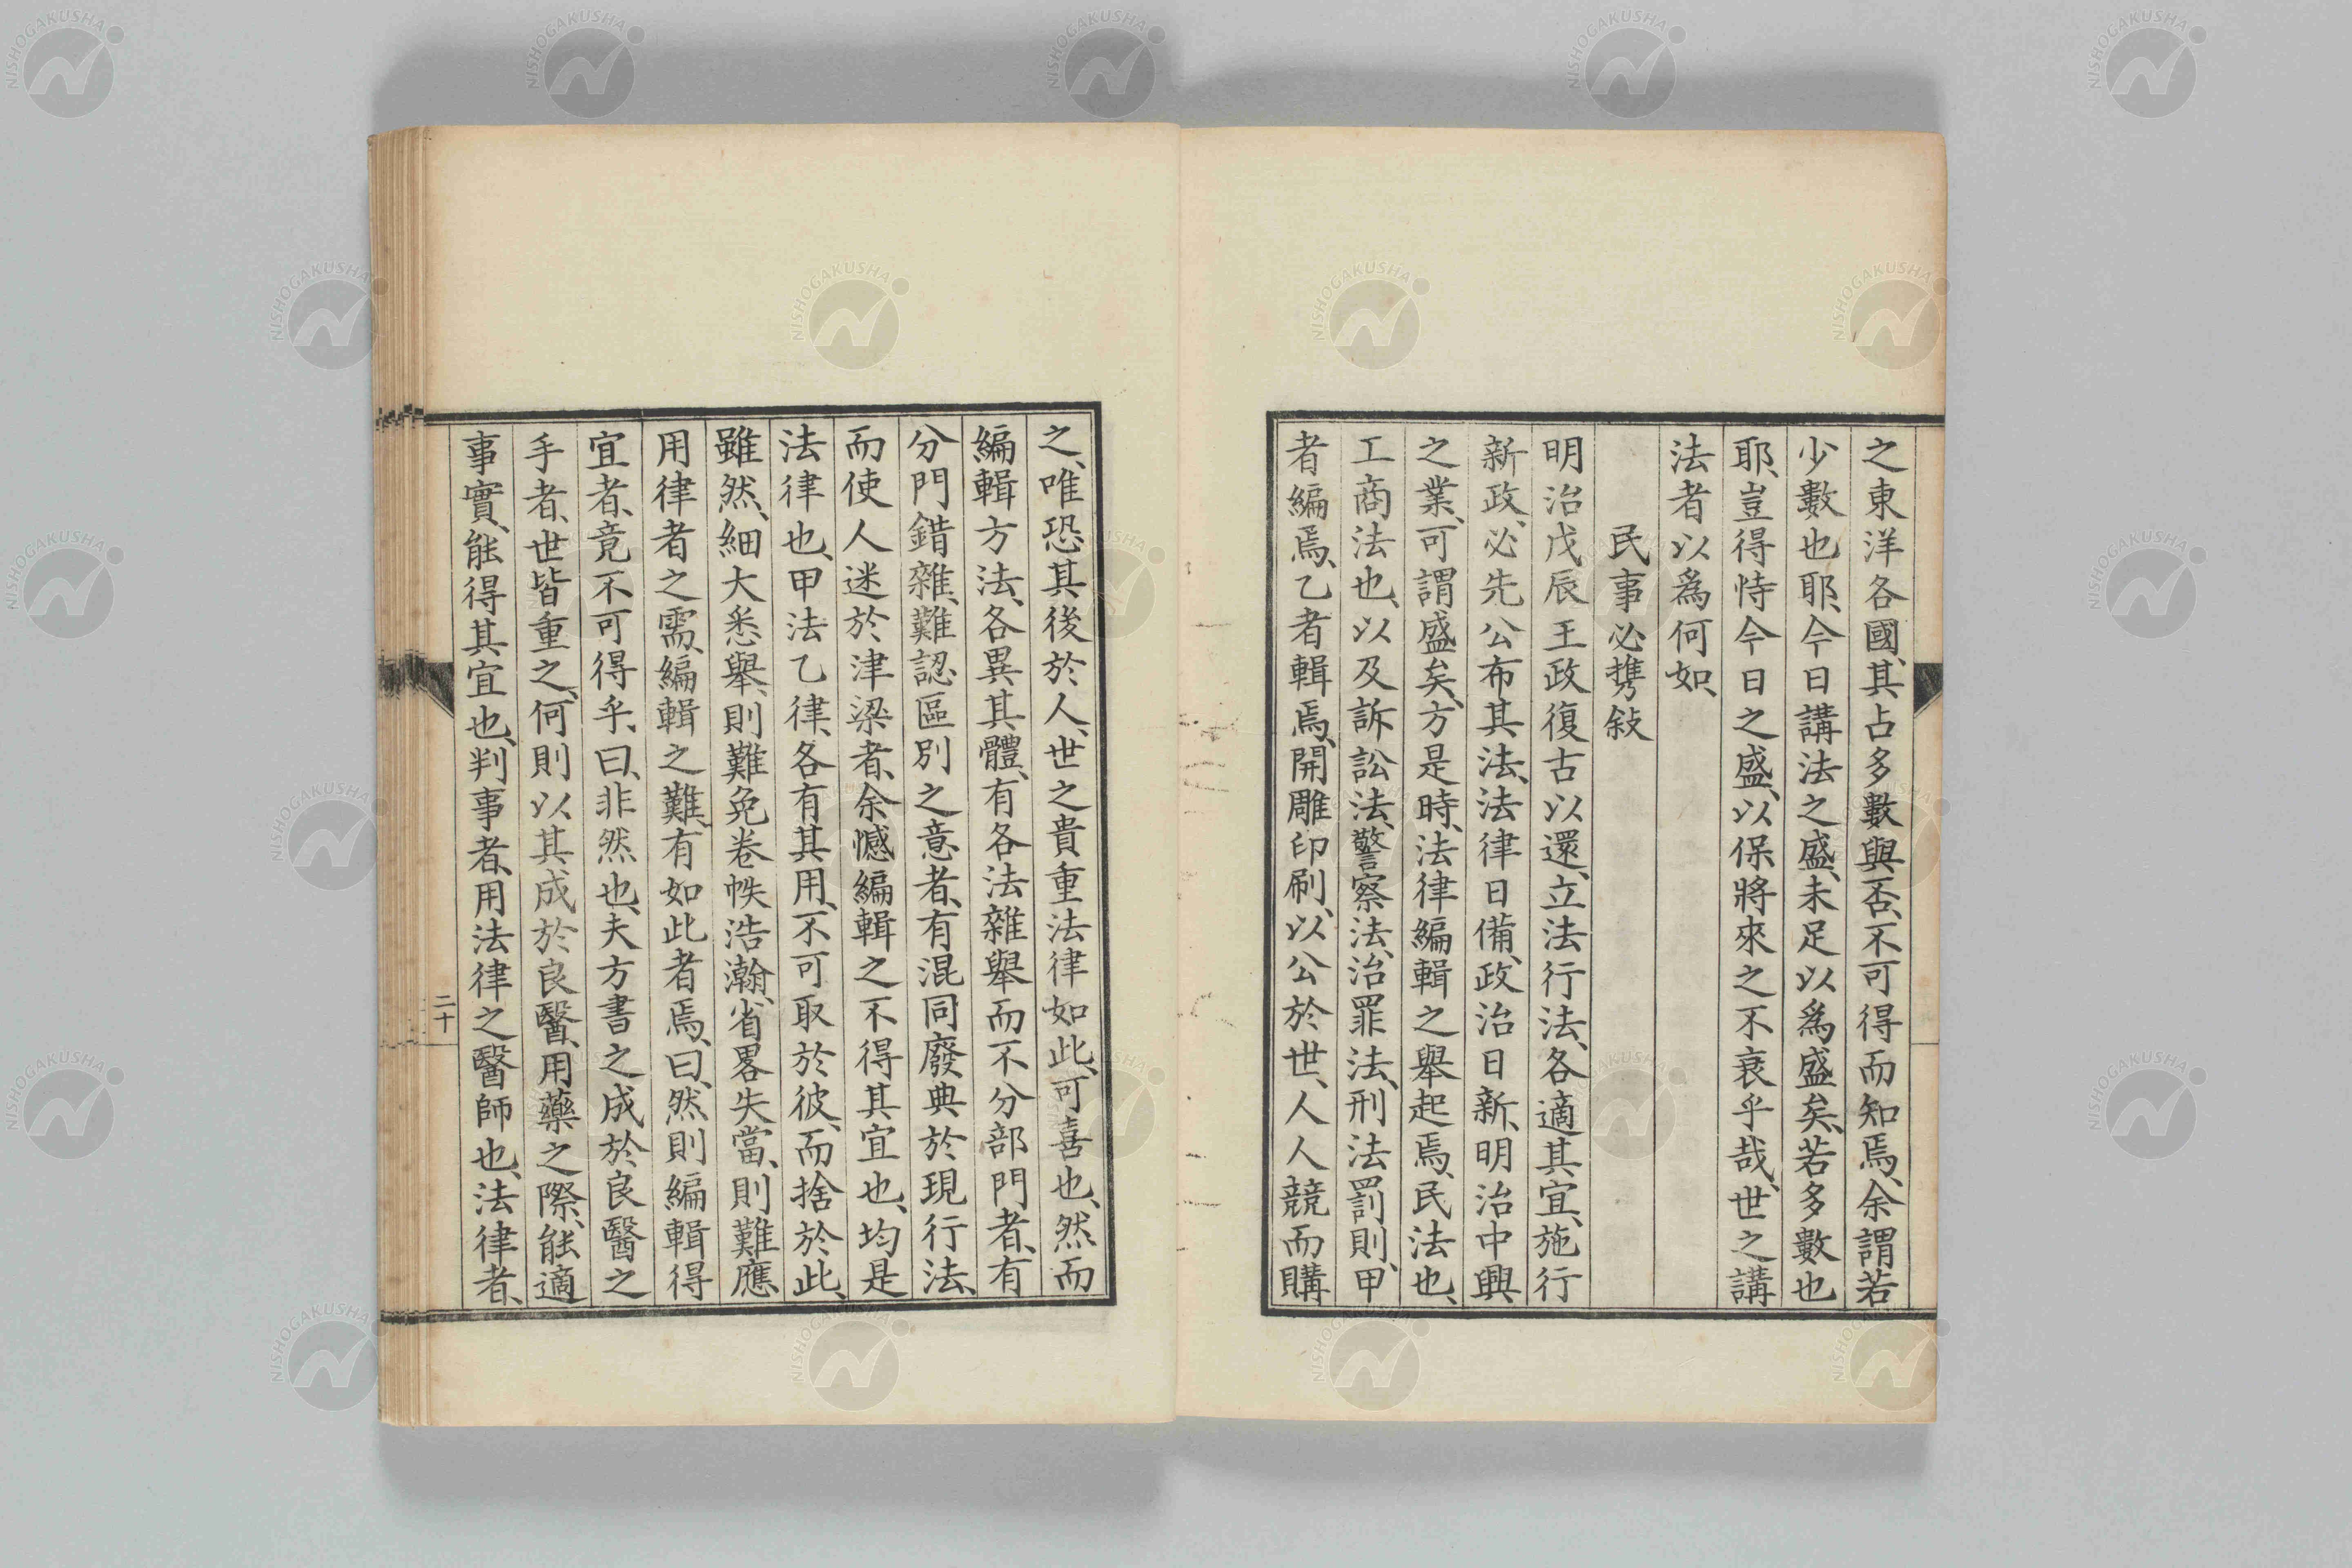 之東洋各國、其占多數與否、不可得而知焉、余謂若
少數也耶、今日講法之盛、未足以爲盛矣、若多數也
耶、豈得恃今日之盛、以保將來之不衰乎哉、世之講
法者以爲何如、
民事必携敍
明治戊辰王政復古以還、立法行法、各適其宜、施行
新政、必先公布其法、法律日備、政治日新、明治中興
之業、可謂盛矣、方是時、法律編輯之舉起焉、民法也、
工商法也、以及訴訟法、警察法、治罪法、刑法罰則、甲
者編焉、乙者輯焉、開雕印刷、以公於世、人人競而購
之、唯恐其後於人、世之貴重法律如此、可喜也、然而
編輯方法、各異其體、有各法雜舉而不分部門者、有
分門錯雜、難認區別之意者、有混同廢典於現行法、
而使人迷於津梁者、余憾編輯之不得其宜也、均是
法律也、甲法乙律、各有其用、不可取於彼、而捨於此、
雖然、細大悉舉、則難免卷帙浩瀚、省畧失當、則難應
用律者之需、編輯之難、有如此者焉、曰、然則編輯得
宜者、竟不可得乎、曰、非然也、夫方書之成於良醫之
手者、世皆重之、何則以其成於良醫、用藥之際、能適
事實、能得其宜也、判事者、用法律之醫師也、法律者、
二十
NISHOGAKUSHA